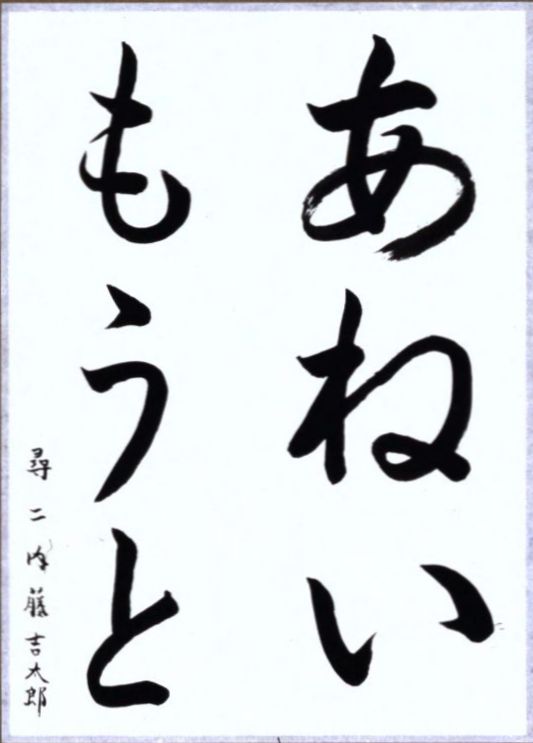 あねい
もうと
尋二 内藤吉太郎